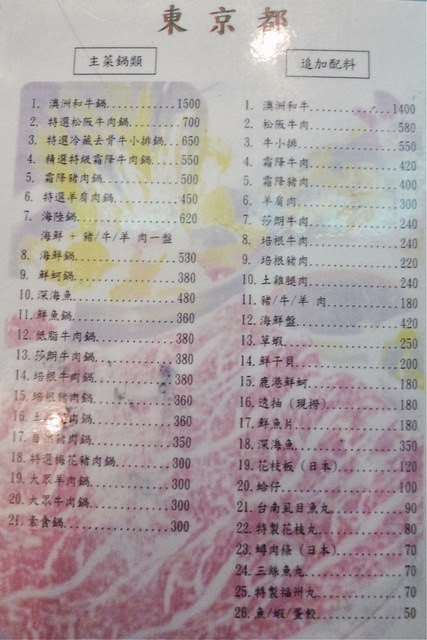 東京都
主菜鍋類
1. 澳洲和牛鍋..........1500
2. 特選松阪牛肉鍋........700
3. 特選冷藏去骨牛小排鍋...650
4. 精選特級霜降牛肉鍋....550
5. 霜降豬肉鍋...........500
6. 特選羊肩肉鍋.........450
7. 海陸鍋..............620
海鮮+豬/牛/羊 肉一盤
8. 海鮮鍋..............530
9. 鮮蚵鍋..............380
10. 深海魚.............480
11. 鮮魚鍋.............360
12. 低脂牛肉鍋..........380
13. 莎朗牛肉鍋..........380
14. 培根牛肉鍋..........380
15. 培根豬肉鍋..........360
16. 土 肉鍋............360
17. 自然豬肉鍋..........350
18. 特選梅花豬肉鍋.......300
19. 大眾羊肉鍋..........300
20. 大眾牛肉鍋..........300
21. 素食鍋.............300
追加配料
1. 澳洲和牛............1400
2. 松阪牛肉............580
3. 牛小排..............550
4. 霜降牛肉............420
5. 霜降豬肉............400
6. 羊肩肉..............300
7. 莎朗牛肉............240
8. 培根牛肉............240
9. 培根豬肉............220
10. 土雞腿肉...........240
11. 豬/牛/羊 肉........180
12. 海鮮盤.............420
13. 草蝦...............250
14. 鮮干貝.............200
15. 鹿港鮮蚵...........180
16. 透抽(現撈)........180
17. 鮮魚片.............180
18. 深海魚.............350
19. 花枝板(日本)......120
20. 蛤仔...............100
21. 台南虱目魚丸........90
22. 特製花枝丸..........80
23. 蟳肉條(日本).......70
24. 三絲魚丸............70
25. 特製福州丸..........70
26. 魚/蝦/蛋餃..........50